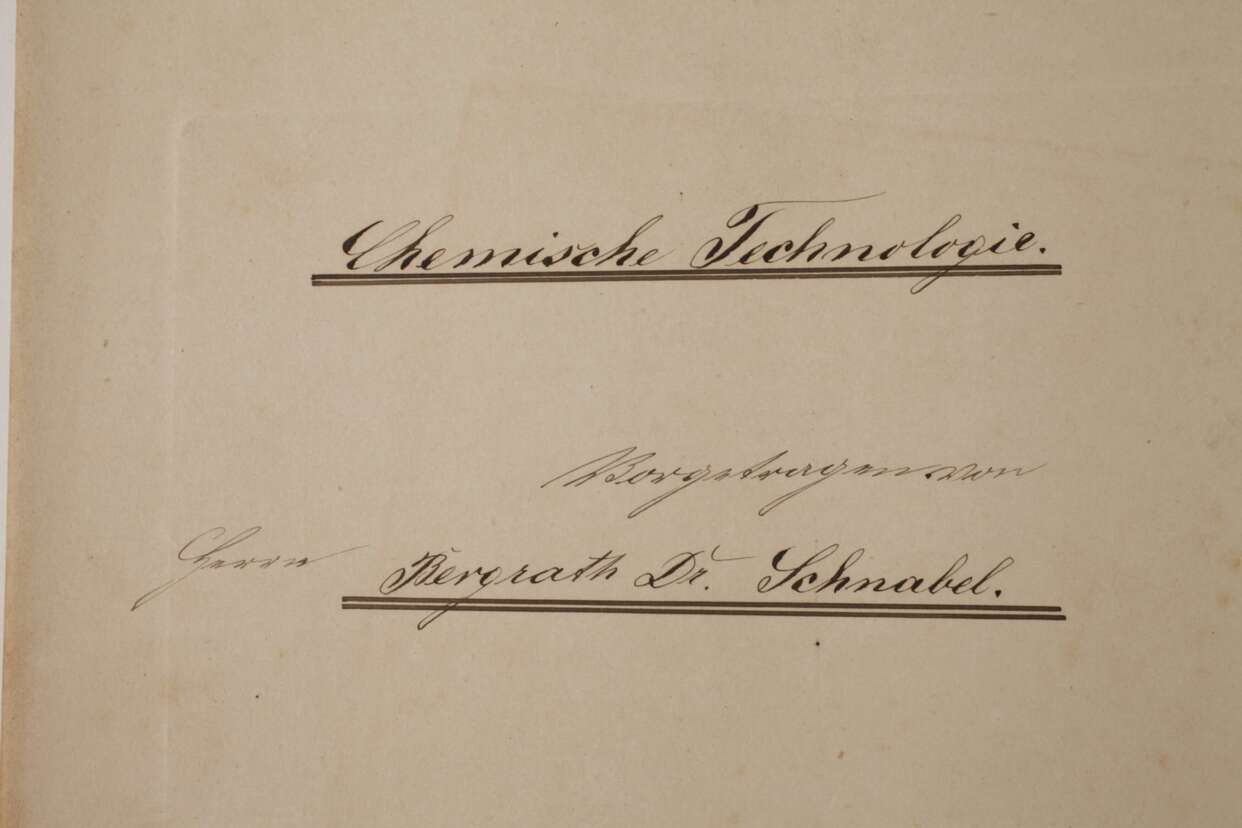 Chemische Technologie.
Vorgetragen von
Herrn Bergrath Dr. Schnabel.